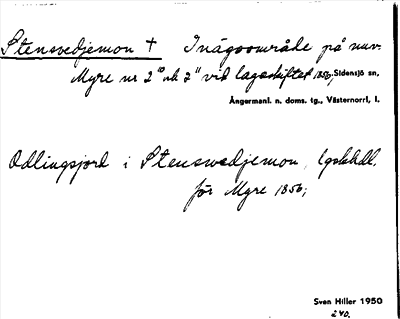 Stensvedjemon † Inägoområde på nuv.
Myre nr 2¹⁰ och 2¹¹ vid lagaskiftet 1856, Sidensjö sn,
Ångermanl. n. doms. tg., Västernorrl, l.
Odlingsjord i Stenswedjemon, lgskhdl.
för Myre 1856;
Sven Hiller 1950
240.